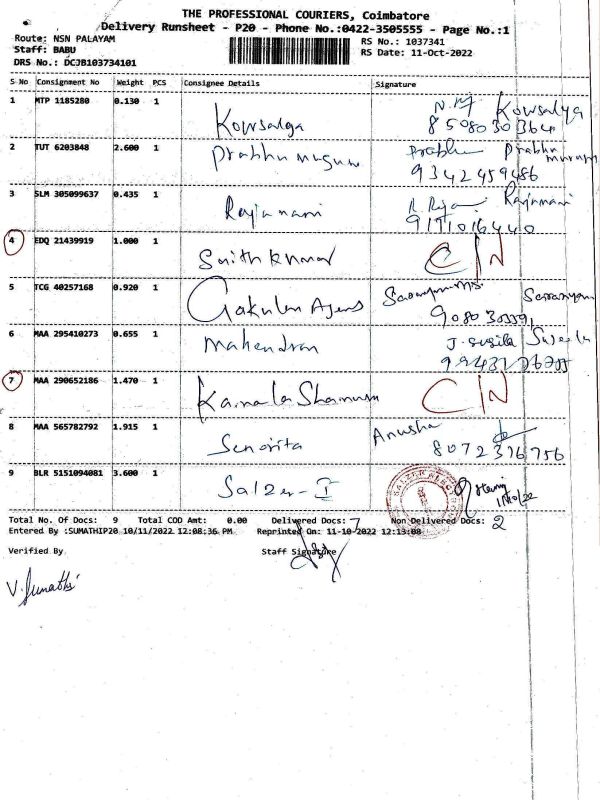 THE PROFESSIONAL COURIERS, Coimbatore
Delivery Runsheet - P20 - Phone No.:0422-3505555 - Page No.:1
Route: NSN PALAYAM
RS No.: 1037341
Staff: BABU
RS Date: 11-Oct-2022
DRS No.: DCJB103734101
S No Consignment No Weight PCS Consignee Details Signature
1 MTP 1185280 0.130 1 Kowsalya Kowsalya
8508030364
2 TUT 6203848 2.600 1 Prabhu murugan Prabhu Prabhu murugan
9342459486
3 SLM 305099637 0.435 1 Rajamani R. Raja Rajamani
9171016440
4 EDQ 21439919 1.000 1 Sujith Kumar C/N
5 TCG 40257168 0.920 1 Gokulan Agens
6 MAA 295410273 0.655 1 Mahendran J. Susila Suseela
7 MAA 290652186 1.470 1 Kamala Shanmugam C/N
8 MAA 565782792 1.915 1 Senorita Anusha
8072376756
9 BLR 5151094081 3.600 1 Salzer-I 11/10/22
Total No. Of Docs: 9 Total COD Amt: 0.00 Delivered Docs: 7 Non Delivered Docs: 2
Entered By :SUMATHIP20 10/11/2022 12:08:36 PM Reprinted On: 11-10-2022 12:13:08
Verified By Staff Signature
V. Sumathi